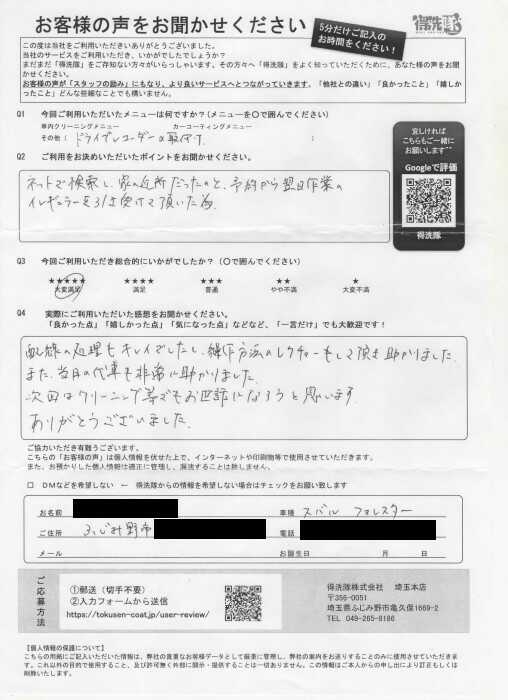 お客様の声をお聞かせください
5分だけご記入の
お時間をください！
得洗隊
この度は当社をご利用いただきありがとうございました。
当社のサービスをご利用いただき、いかがでしたでしょうか？
まだまだ「得洗隊」をご存知ない方々がいらっしゃいます。その方々へ「得洗隊」をよく知っていただくために、あなた様の声をお聞
かせください。
お客様の声が「スタッフの励み」にもなり、より良いサービスへとつながっていきます。「他社との違い」「良かったこと」「嬉しか
ったこと」どんな些細なことでも構いません。
Q1 今回ご利用いただいたメニューは何ですか？（メニューを〇で囲んでください）
車内クリーニングメニュー カーコーティングメニュー
その他：ドライブレコーダーの取付け
Q2 ご利用をお決めいただいたポイントをお聞かせください。
ネットで検索し、家の近所だったのと、予約から翌日作業の
イレギュラーを引き受けて頂いた為。
宜しければ
こちらもご一緒に
お願いします^^
Googleで評価
得洗隊
Q3 今回ご利用いただき総合的にいかがでしたか？（〇で囲んでください）
★★★★★ ★★★★ ★★★ ★★ ★
大変満足 満足 普通 やや不満 大変不満
Q4 実際にご利用いただいた感想をお聞かせください。
「良かった点」「嬉しかった点」「気になった点」などなど、「一言だけ」でも大歓迎です！
配線の処理もキレイでしたし、操作方法のレクチャーもして頂き助かりました。
また、当日の代車も非常に助かりました。
次回はクリーニング等でもお世話になろうと思います。
ありがとうございました。
ご協力いただき有難うございます。
こちらの「お客様の声」は個人情報を伏せた上で、インターネットや印刷物等で使用させていただきます。
また、お預かりした個人情報は適正に管理し、漏洩することは致しません。
□ DMなどを希望しない ← 得洗隊からの情報を希望しない場合はチェックをお願い致します
お名前 車種 スバル フォレスター
ご住所 ふじみ野市 電話
メール お誕生日 月 日
ご応募方法
①郵送（切手不要）
②入力フォームから送信
https://tokusen-coat.jp/user-review/
得洗隊株式会社 埼玉本店
〒356-0051
埼玉県ふじみ野市亀久保1669-2
TEL 049-265-8186
【個人情報の保護について】
こちらの用紙にご記入いただいた情報は、弊社の貴重なお客様データとして厳重に管理し、弊社の案内をお送りすることのみに使用させていただきま
す。これ以外の目的で使用すること、及び許可無く外部に開示・提供することは一切ありません。この情報はご本人からの申し出により訂正もしくは
削除いたします。